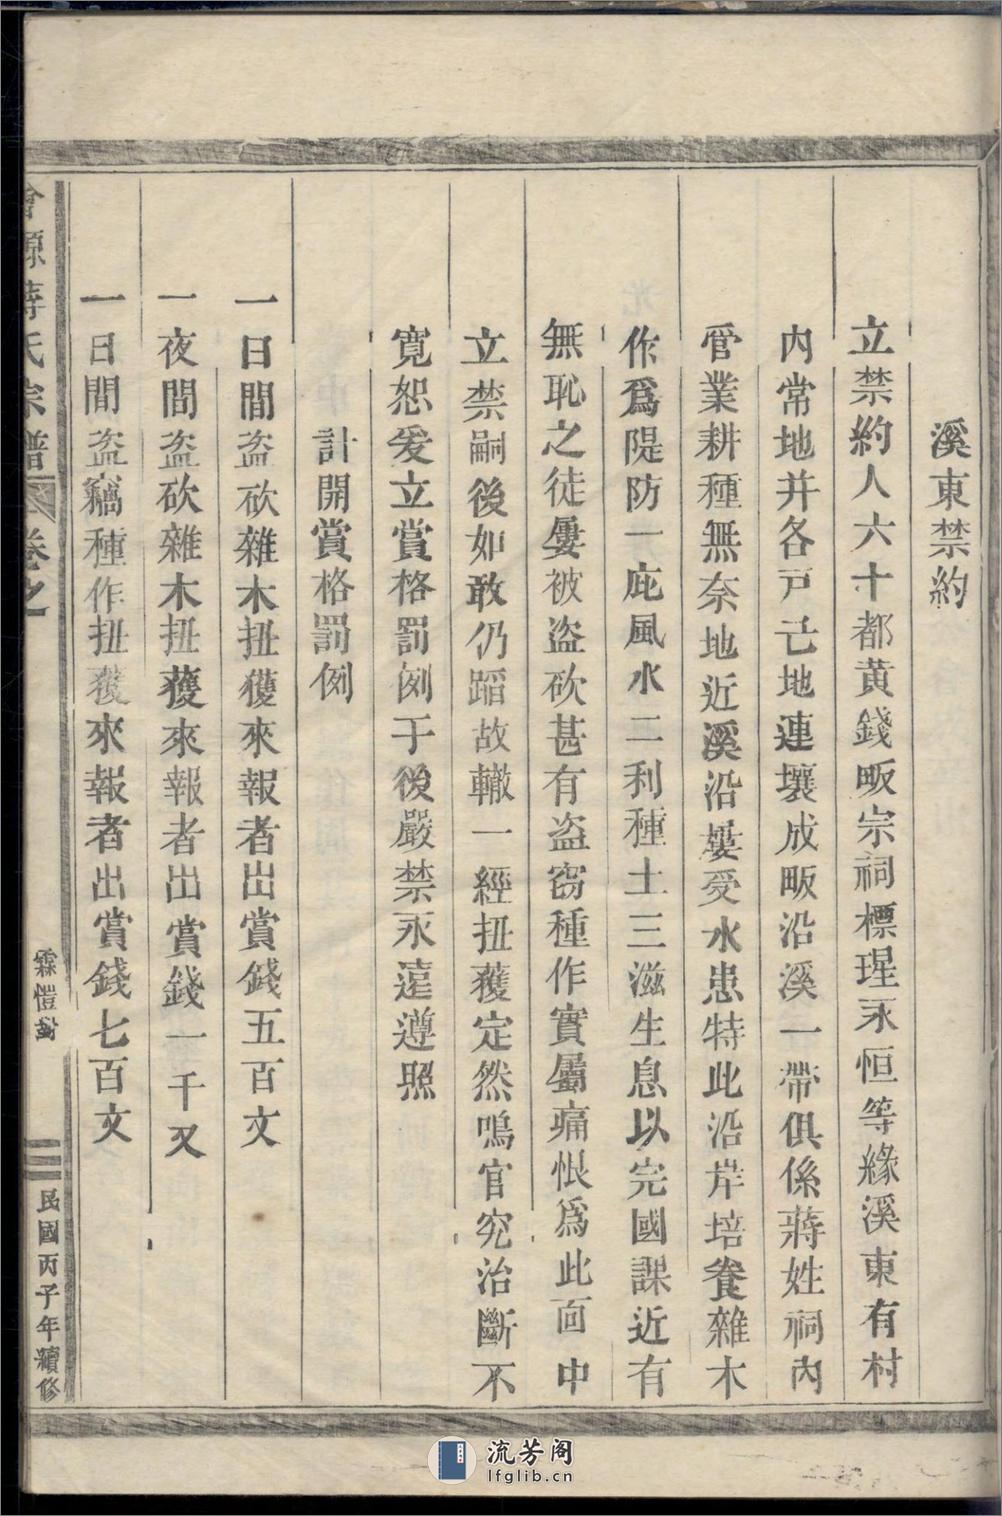 溪東禁約
立禁約人六十都黄錢畈宗祠標瑆永恒等緣溪東有村
内常地并各戸己地連壤成畈沿溪一帶俱係蔣姓祠内
管業耕種無奈地近溪沿屢受水患特此沿岸培養雜木
作爲隄防一庇風水二利種土三滋生息以完國課近有
無恥之徒屢被盗砍甚有盗窃種作實屬痛恨爲此面中
立禁嗣後如敢仍蹈故轍一經扭獲定然鳴官究治斷不
寛恕爰立賞格罰例于後嚴禁永遠遵照
計開賞格罰例
一日間盗砍雜木扭獲來報者出賞錢五百文
一夜間盗砍雜木扭獲來報者出賞錢一千文
一日間盗竊種作扭獲來報者出賞錢七百文
源蔣氏宗譜 卷之
霖愷
民國丙子年續修
流芳阁
lfglib.cn